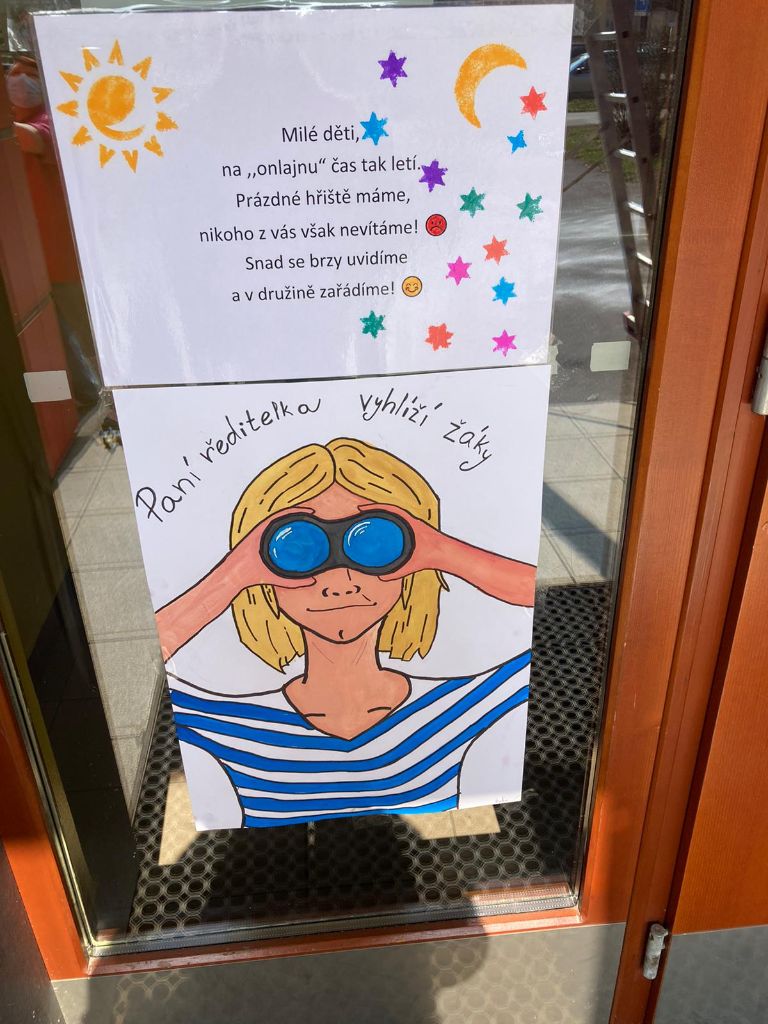 Milé děti,
na ,,onlajnu“ čas tak letí.
Prázdné hřiště máme,
nikoho z vás však nevítáme!
Snad se brzy uvidíme
a v družině zařádíme!
Paní ředitelka vyhlíží žáky